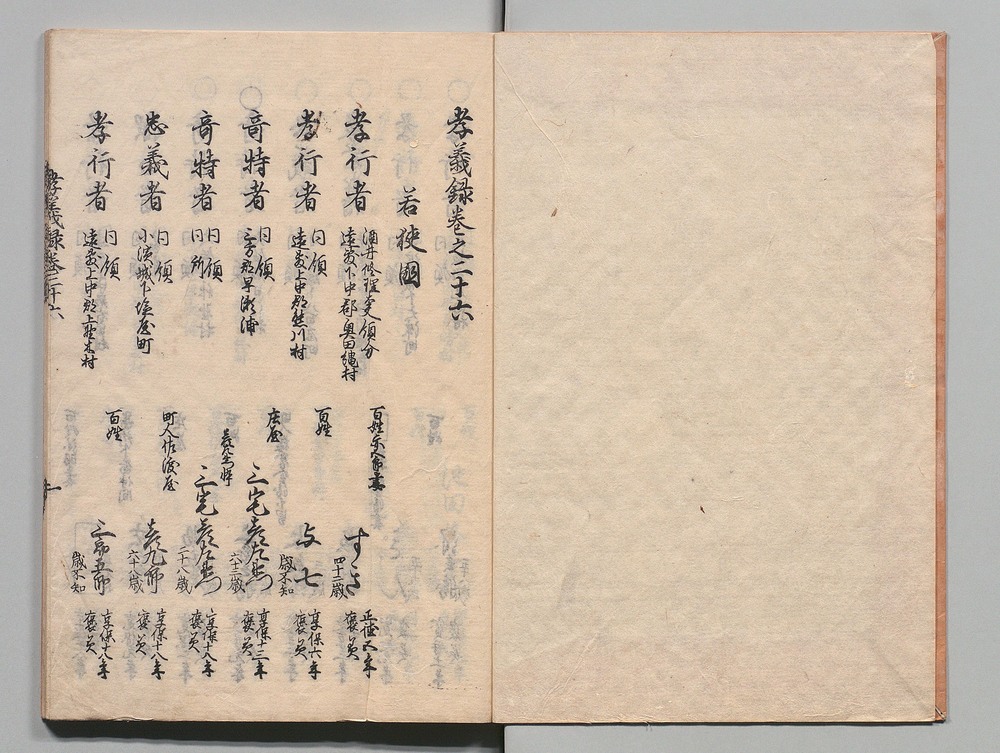 孝義録巻之二十六
若狭國
孝行者 酒井修理大夫領分 遠敷下中郡奥田縄村 百姓 妻 すき 四十二歳 正徳五年 褒美
孝行者 同領 遠敷上中郡熊川村 百姓 与七 歳不知 享保六年 褒美
○奇特者 同領 三方郡早瀬浦 庄屋 三宅 六十三歳 享保十三年 褒美
奇特者 同領 同所 三宅 二十八歳 享保十八年 褒美
忠義者 同領 小濱城下塩屋町 町人佐渡屋 喜九郎 六十八歳 享保十八年 褒美
孝行者 同領 遠敷上中郡上野木村 百姓 三郎五郎 歳不知 享保十八年 褒美
孝義録巻二十六
一